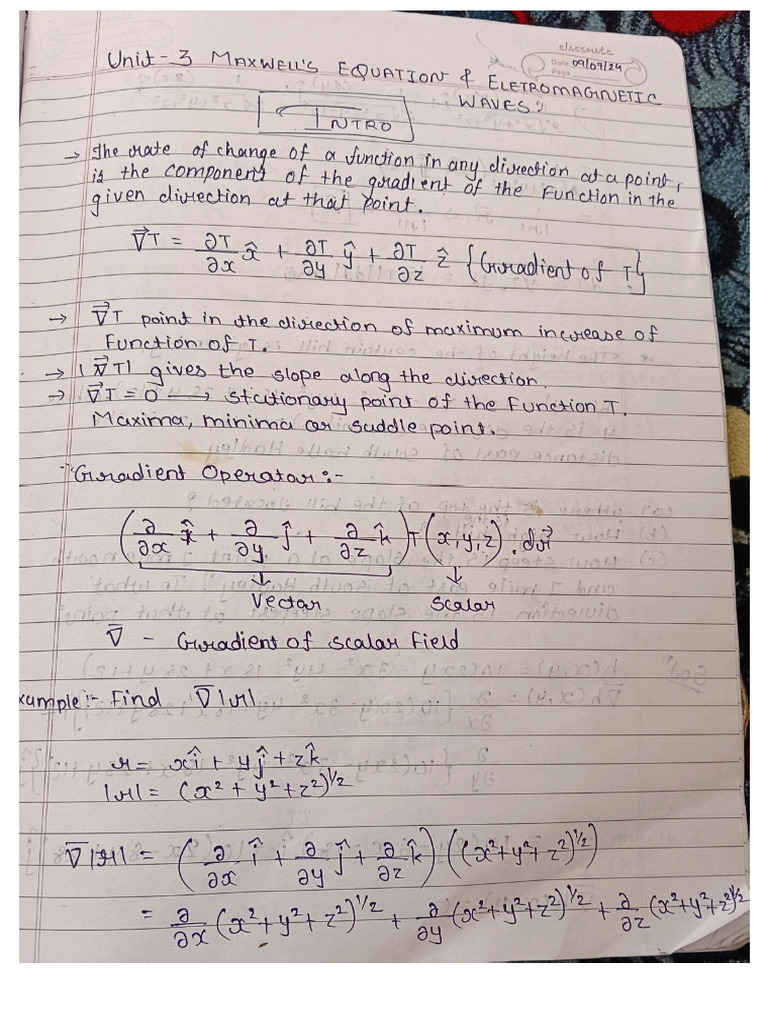 classmate
Date 09/07/24
Page
Unit - 3 MAXWELL'S EQUATION & ELETROMAGNETIC
WAVES:
INTRO
→ The rate of change of a function in any direction at a point,
is the component of the gradient of the Function in the
given direction at that point.
∇⃗T = ∂T/∂x x̂ + ∂T/∂y ŷ + ∂T/∂z ẑ {Gradient of T}
→ ∇⃗T point in the direction of maximum increase of
Function of T.
→ |∇⃗T| gives the slope along the direction.
→ ∇⃗T = 0 → stationary point of the Function T.
Maxima, minima or saddle point.
Gradient Operator:-
(∂/∂x x̂ + ∂/∂y ĵ + ∂/∂z k̂) T (x,y,z) . dr⃗
Vector Scalar
∇̅ - Gradient of Scalar Field
xample:- Find ∇̅|r|
r = xî + yĵ + zk̂
|r| = (x² + y² + z²)^1/2
∇̅|r| = (∂/∂x î + ∂/∂y ĵ + ∂/∂z k̂) ((x² + y² + z²)^1/2)
= ∂/∂x (x² + y² + z²)^1/2 + ∂/∂y (x² + y² + z²)^1/2 + ∂/∂z (x² + y² + z²)^1/2